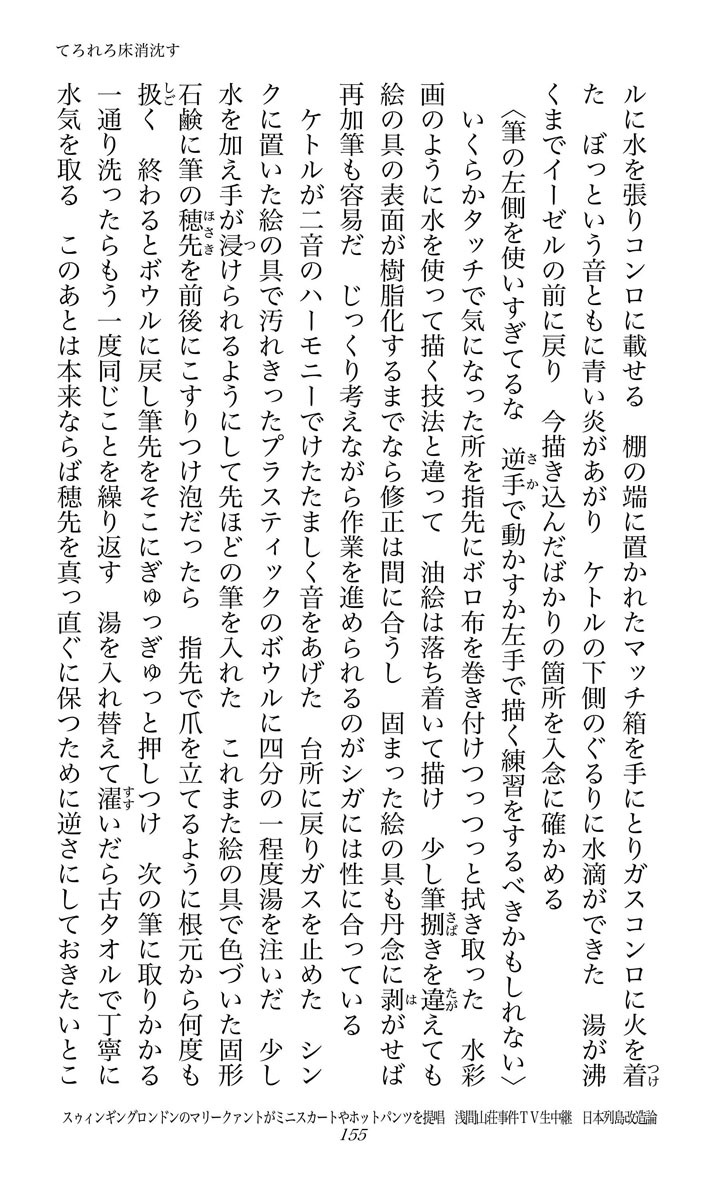 てろれろ床消沈す
ルに水を張りコンロに載せる　棚の端に置かれたマッチ箱を手にとりガスコンロに火を着つけ
た　ぼっという音ともに青い炎があがり　ケトルの下側のぐるりに水滴ができた　湯が沸
くまでイーゼルの前に戻り　今描き込んだばかりの箇所を入念に確かめる
〈筆の左側を使いすぎてるな　逆さか手で動かすか左手で描く練習をするべきかもしれない〉
いくらかタッチで気になった所を指先にボロ布を巻き付けつっつっと拭き取った　水彩
画のように水を使って描く技法と違って　油絵は落ち着いて描け　少し筆捌さばきを違たがえても
絵の具の表面が樹脂化するまでなら修正は間に合うし　固まった絵の具も丹念に剥はがせば
再加筆も容易だ　じっくり考えながら作業を進められるのがシガには性に合っている
ケトルが二音のハーモニーでけたたましく音をあげた　台所に戻りガスを止めた　シン
クに置いた絵の具で汚れきったプラスティックのボウルに四分の一程度湯を注いだ　少し
水を加え手が浸つけられるようにして先ほどの筆を入れた　これまた絵の具で色づいた固形
石鹸に筆の穂先ほさきを前後にこすりつけ泡だったら　指先で爪を立てるように根元から何度も
扱しごく　終わるとボウルに戻し筆先をそこにぎゅっぎゅっと押しつけ　次の筆に取りかかる
一通り洗ったらもう一度同じことを繰り返す　湯を入れ替えて濯すすいだら古タオルで丁寧に
水気を取る　このあとは本来ならば穂先を真っ直ぐに保つために逆さにしておきたいとこ
スゥィンギングロンドンのマリークァントがミニスカートやホットパンツを提唱　浅間山荘事件ＴＶ生中継　日本列島改造論
155